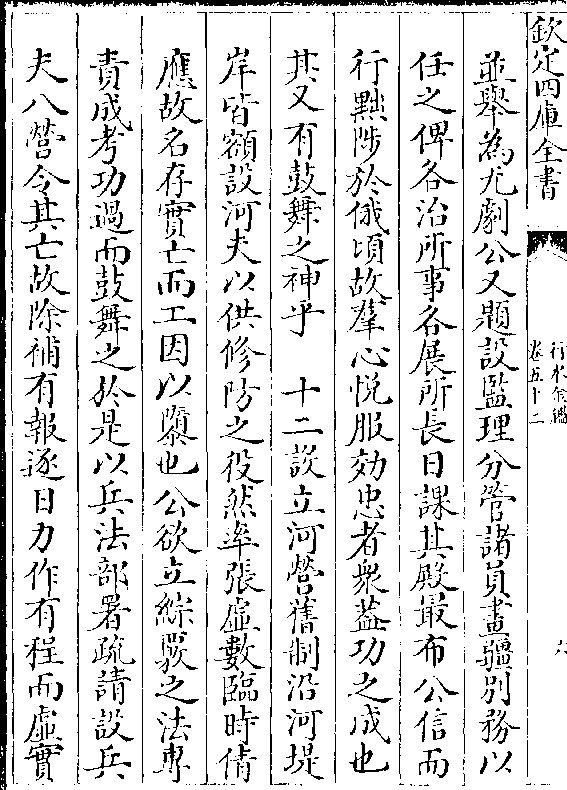 欽定四庫全書
行水金鑑
卷五十二
六
並舉為尤劇公又題設監理分管諸員畫疆别務以
任之俾各治所事各展所長日課其殿最布公信而
行黜陟於俄頃故羣心悦服効忠者衆葢功之成也
其又有鼓舞之神乎　十二設立河營舊制沿河堤
岸皆額設河夫以供修防之役然率張虛數臨時倩
應故名存實亡而工因以隳也公欲立綜覈之法專
責成考功過而鼓舞之於是以兵法部署疏請設兵
夫八營令其亡故除補有報逐日力作有程而虛實